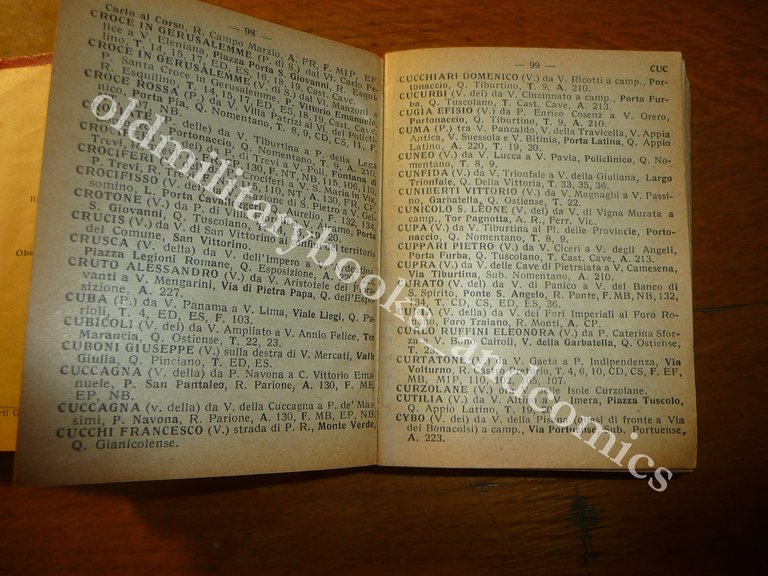 — 98 —
Carlo al Corso, R. Campo Marzio, A, FR, F, MIP, EF
CROCE IN GERUSALEMME (P. di S.) dal Vl. Carlo Fe-
lice a V. Eleniana, Piazza Porta S. Giovanni, R. Esqui-
lino, T. 14, 15, 17, ED, ES, 16, 18, 19, Cast. Cave.
CROCE IN GERUSALEMME (V. di S.) da V. Manzoni a
P. Santa Croce in Gerusalemme, P. Vittorio Emanuele,
R. Esquilino, T. 14, 15, 17, ED, ES, 18, 19, Cast. Cave.
CROCE ROSSA (P.) da V. Villa Patrizi al Vl. del Policli-
nico, Porta Pia, Q. Nomentano, T. 8, 9, CD, CS, 11, F.
107, NB.
delle) da V. Tiburtina a P. della Lega
Portonaccio, Q. Nomentano, T. 9, A. 210.
dei) da P. di Trevi a V. Poli, Fontana di
Trevi, R. Trevi, F. 130, F. NT, NB, 115, 106, 110
CROCIFERI
Crociferi a V. S. Maria in Via,
P. Trevi, R. Trevi, 115, 110, NT, A. 130, FR, CF
CROCIFISSO (V. del) da V. Stazione di S. Pietro a V. Gel-
somino, L. Porta Cavalleggeri, Q. Aurelio, F. 132, 134.
CROTONE (V.) da P. di Villa
S. Giovanni, Q. Tuscolano, T. 16, 18, 19, 20.
CRUCIS (V.) da V. di San Vittorino ai confini del territorio
del Comune, San Vittorino.
CRUSCA (V. della) da V. dell'Impero a V. Ardeatina
Piazza Legioni Romane, Q. Esposizione, A. 223
CRUTO ALESSANDRO (V.) da V. Aristotele dei
vanti a V. Mengarini, Via di Pietra Papa, Q. dell'Espo-
sizione, A. 227.
CUBA (P.) da V. Panama a V. Lima, Viale Liegi, Q. Pa-
rioli, T. 4, ED, ES, F. 105.
CUBICOLI (V. dei) da V. Ampliato a V. Annio Felice, Tor
Marancia, Q. Ostiense, T. 22, 23.
CUBONI GIUSEPPE (V.) sulla destra di V. Mercati, Valle
Giulia, Q. Pinciano, T. ED, ES.
CUCCAGNA (V. della) da P. Navona a C. Vittorio Ema-
nuele, P. San Pantaleo, R. Parione, A. 130, F. MB,
EP, NB.
CUCCAGNA (v. della) da V. della Cuccagna a P. de' Mas-
simi, P. Navona, R. Parione, A. 130, F. MB, EP, NB.
CUCCHI FRANCESCO (V.) strada di P. R., Monte Verde,
Q. Gianicolense.
— 99 — CUC
CUCCHIARI DOMENICO (V.) da V. Ricotti a camp., Por-
tonaccio, Q. Tiburtino, T. 9, A. 210.
CUCURBI (V. dei) da V. Cincinnato a camp., Porta Fur-
ba, Q. Tuscolano, T. Cast. Cave, A. 213.
CUGIA EFISIO (V.) da P. Enrico Cosenz a V. Orero,
Portonaccio, Q. Tiburtino, T. 9, A. 210.
CUMA (P.) tra V. Pancaldo, V. della Travicella, V. Appia
Antica, V. Suessola e V. Bitinia, Porta Latina, Q. Appio
Latino, A. 220, T. 19, 20.
CUNEO (V.) da V. Lucca a V. Pavia, Policlinico, Q. No-
mentano, T. 8, 9.
CUNFIDA (V.) da V. Trionfale a V. della Giuliana, Largo
Trionfale, Q. Della Vittoria, T. 33, 35, 36.
CUNIBERTI VITTORIO (V.) da V. Magnaghi a V. Passi-
no, Garbatella, Q. Ostiense, T. 22.
CUNICOLO S. LEONE (V. del) da V. di Vigna Murata a
camp., Tor Pagnotta, A. R., Ferr. Vic.
CUPA (V.) da V. Tiburtina al Pl. delle Provincie, Porto-
naccio, Q. Nomentano, T. 8, 9.
CUPPARI PIETRO (V.) da V. Noceri a V. degli Angeli,
Porta Furba, Q. Tuscolano, T. Cast. Cave, A. 213.
CUPRA (V.) da V. delle Cave di Pietralata a V. Camesena,
Via Tiburtina, Sub. Nomentano, A. 210.
CURATO (V. del) da V. di Panico a V. del Banco di
S. Spirito, Ponte S. Angelo, R. Ponte, F. MB, NB, 132,
T. CD, CS, ED, ES, 36.
(V. della) da V. dei Fori Imperiali al Foro Ro-
mano, Foro Traiano, R. Monti, A. CP.
CURLO RUFFINI ELEONORA (V.) da P. Caterina Sfor-
za a V. Bono Cairoli, V. della Garbatella, Q. Ostiense,
T.
CURTATONE (V.) da V. Gaeta a P. Indipendenza, Via
Volturno, T. 4, 6, 10, CD, CS, F. EF,
MB, MIP, 110, 107.
CURZOLANE (V.) Isole Curzolane.
CUTILIA (V.) Imera, Piazza Tuscolo,
Q. Appio Latino, T. 19,
CYBO (V. dei) da V. della Pisana (quasi di fronte a Via
dei Bonacolsi) a camp., Via Portuense, Sub. Portuense,
A. 223.
oldmilitarybooks_andcomics